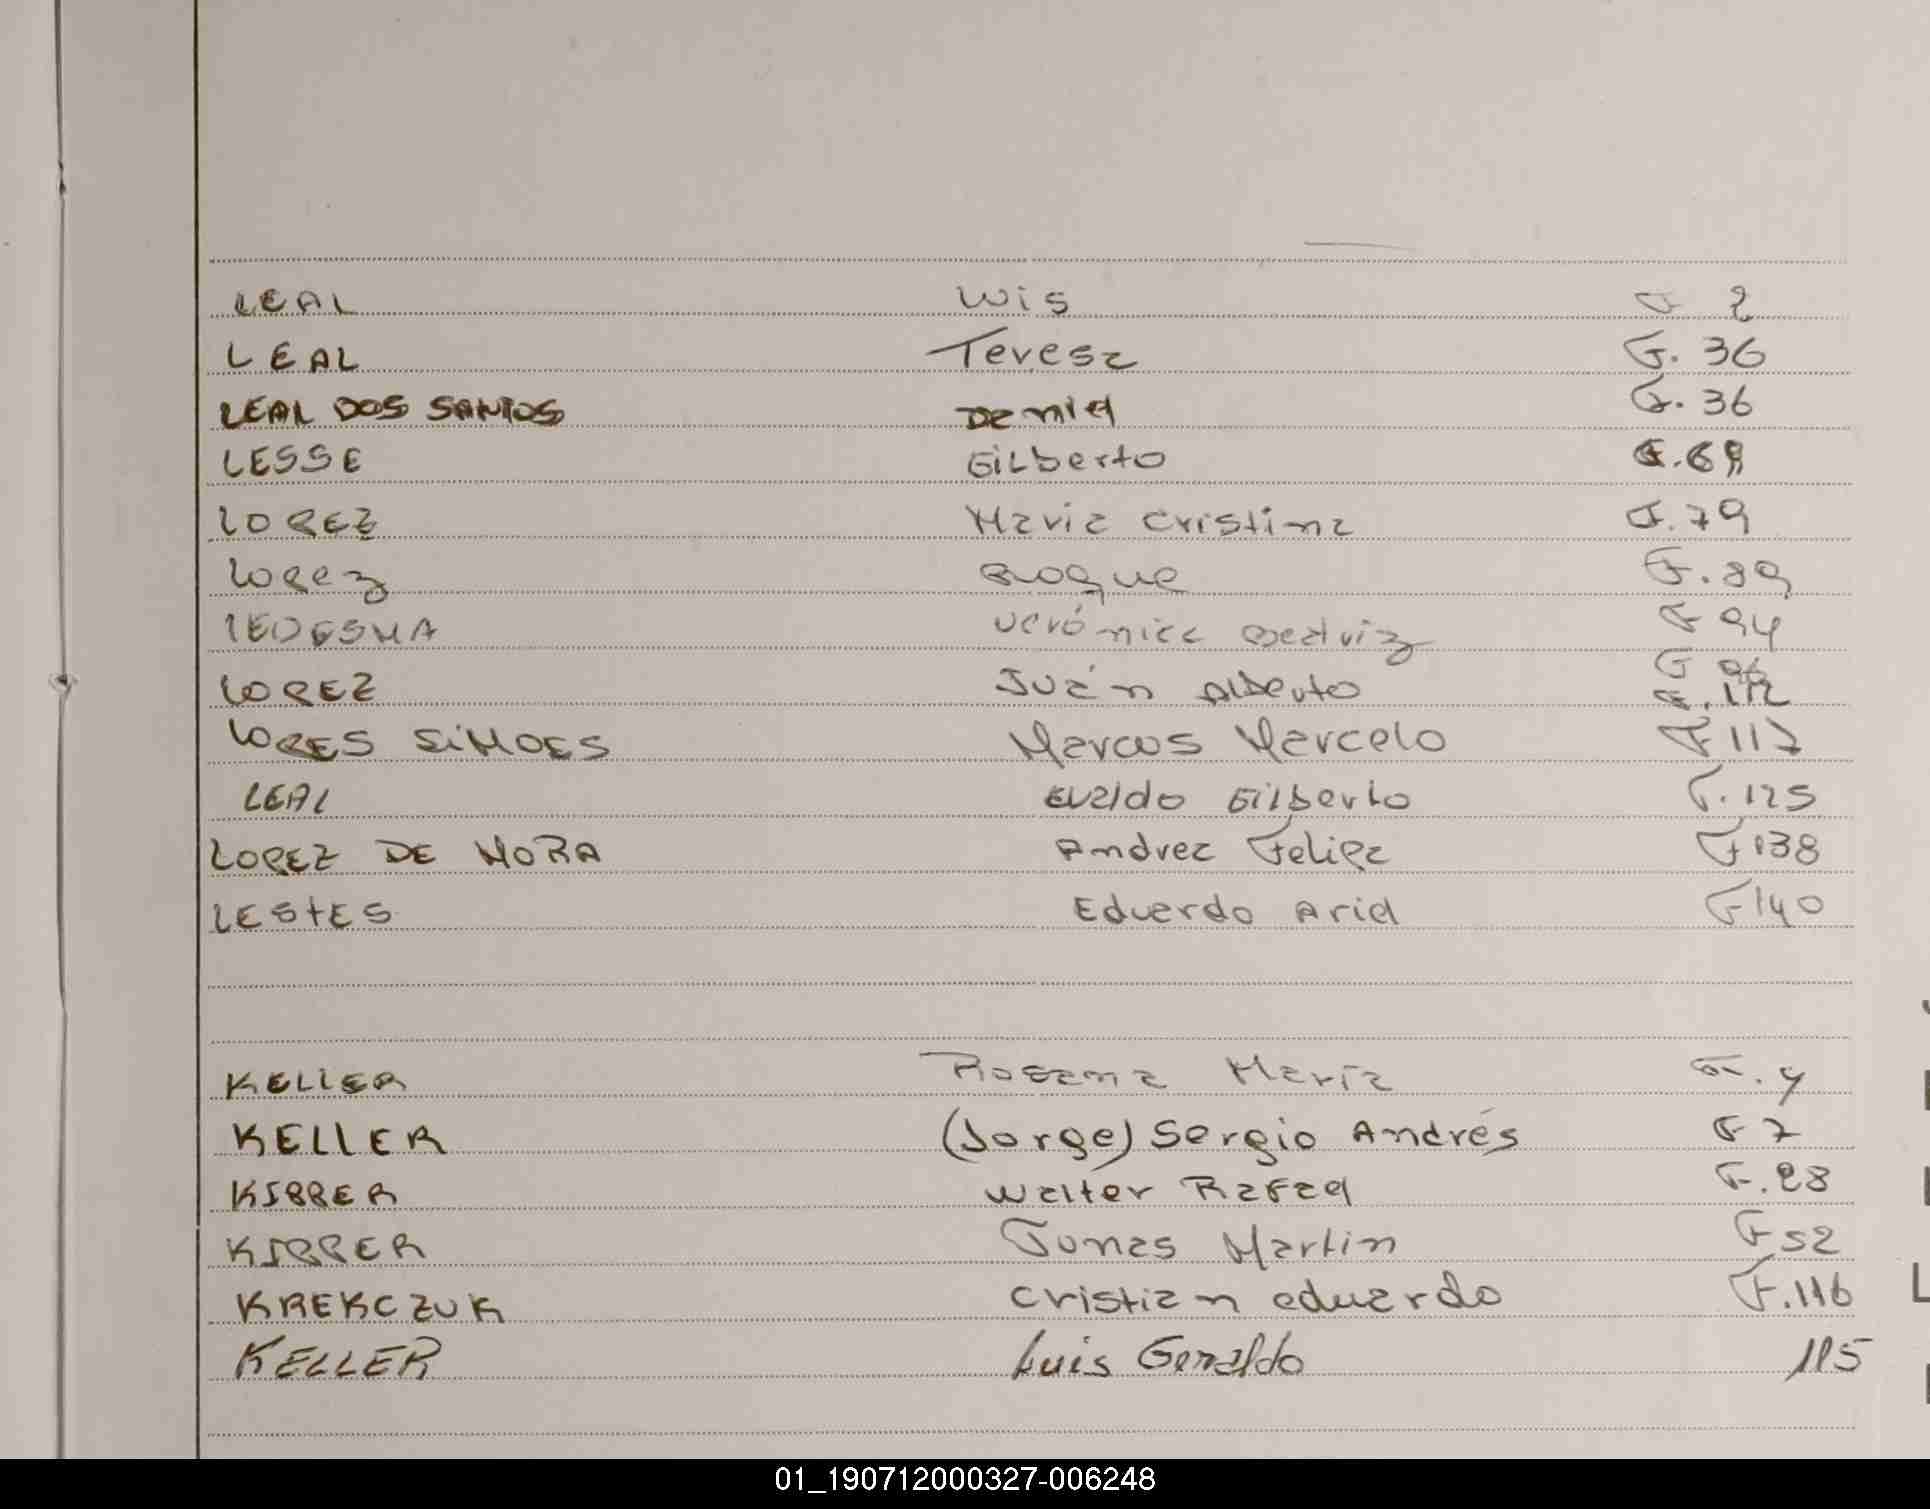 LEAL Luis F 2
LEAL Teresa F. 36
LEAL DOS SANTOS Daniel F. 36
LESSE GiLberto F.69
LOPEZ Maria Cristina F.79
Lopez Roque F.89
LEDESMA Verónica Beatriz F 94
LOPEZ Juán Alberto F. 112
LOPES SiMOES Marcos Marcelo F 117
LEAL Evaldo Gilberto F.125
LOPEZ DE MORA Andrea Felipa F138
LEStES Eduardo Ariel F140
KELLER Rosana Maria F. 4
KELLER (Jorge) Sergio Andrés F 7
KIBBER Walter Rafael F.28
KIBBER Jonas Martin F 52
KREKCZUK Cristian eduardo F.116
KELLER Luis Geraldo 115
01_190712000327-006248